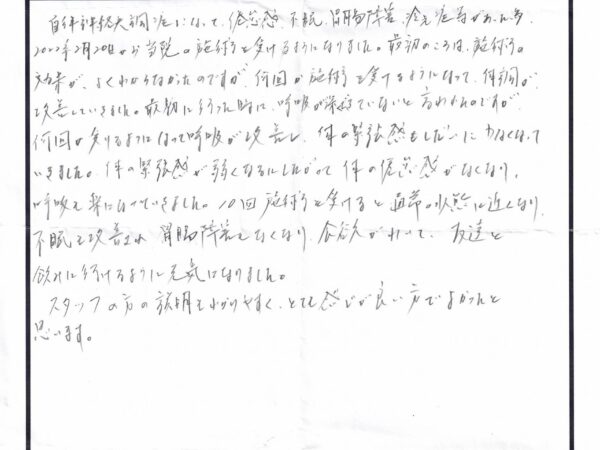 自律神経失調症になって、倦怠感、不眠、胃腸障害、冷え症等があったが、
2022年2月20日から当院の施術を受けるようになりました。最初のころは、施術の
効果が、よくわからなかったのですが、何回か施術を受けるようになって、体調が
改善していきました。最初に行った時に、呼吸が出来ていないと言われたのですが、
何回か受けるようになって呼吸が改善し、体の緊張感もしだいに少なくなって
いきました。体の緊張感が弱くなるにしたがって体の倦怠感がなくなり、
呼吸も楽になっていきました。10回施術を受けると通常の状態に近くなり、
不眠も改善され胃腸障害もなくなり、食欲がわいて、友達と
飲みに行けるように元気になりました。
スタッフの方の説明もわかりやすく、とても感じが良い方でよかったと
思います。